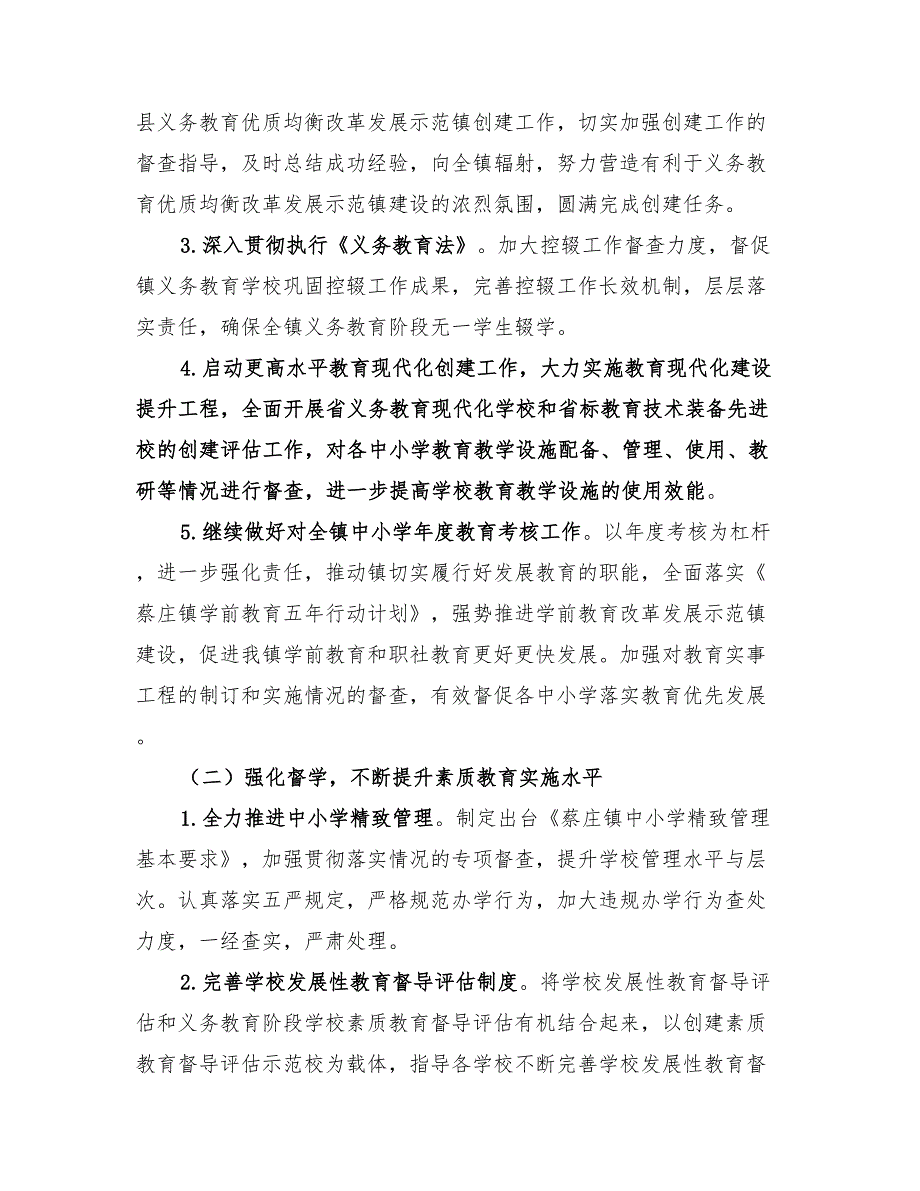 县义务教育优质均衡改革发展示范镇创建工作，切实加强创建工作的
督查指导，及时总结成功经验，向全镇辐射，努力营造有利于义务教
育优质均衡改革发展示范镇建设的浓烈氛围，圆满完成创建任务。
3.深入贯彻执行《义务教育法》。加大控辍工作督查力度，督促
镇义务教育学校巩固控辍工作成果，完善控辍工作长效机制，层层落
实责任，确保全镇义务教育阶段无一学生辍学。
4.启动更高水平教育现代化创建工作，大力实施教育现代化建设
提升工程，全面开展省义务教育现代化学校和省标教育技术装备先进
校的创建评估工作，对各中小学教育教学设施配备、管理、使用、教
研等情况进行督查，进一步提高学校教育教学设施的使用效能。
5.继续做好对全镇中小学年度教育考核工作。以年度考核为杠杆
，进一步强化责任，推动镇切实履行好发展教育的职能，全面落实《
蔡庄镇学前教育五年行动计划》，强势推进学前教育改革发展示范镇
建设，促进我镇学前教育和职社教育更好更快发展。加强对教育实事
工程的制订和实施情况的督查，有效督促各中小学落实教育优先发展
。
（二）强化督学，不断提升素质教育实施水平
1.全力推进中小学精致管理。制定出台《蔡庄镇中小学精致管理
基本要求》，加强贯彻落实情况的专项督查，提升学校管理水平与层
次。认真落实五严规定，严格规范办学行为，加大违规办学行为查处
力度，一经查实，严肃处理。
2.完善学校发展性教育督导评估制度。将学校发展性教育督导评
估和义务教育阶段学校素质教育督导评估有机结合起来，以创建素质
教育督导评估示范校为载体，指导各学校不断完善学校发展性教育督